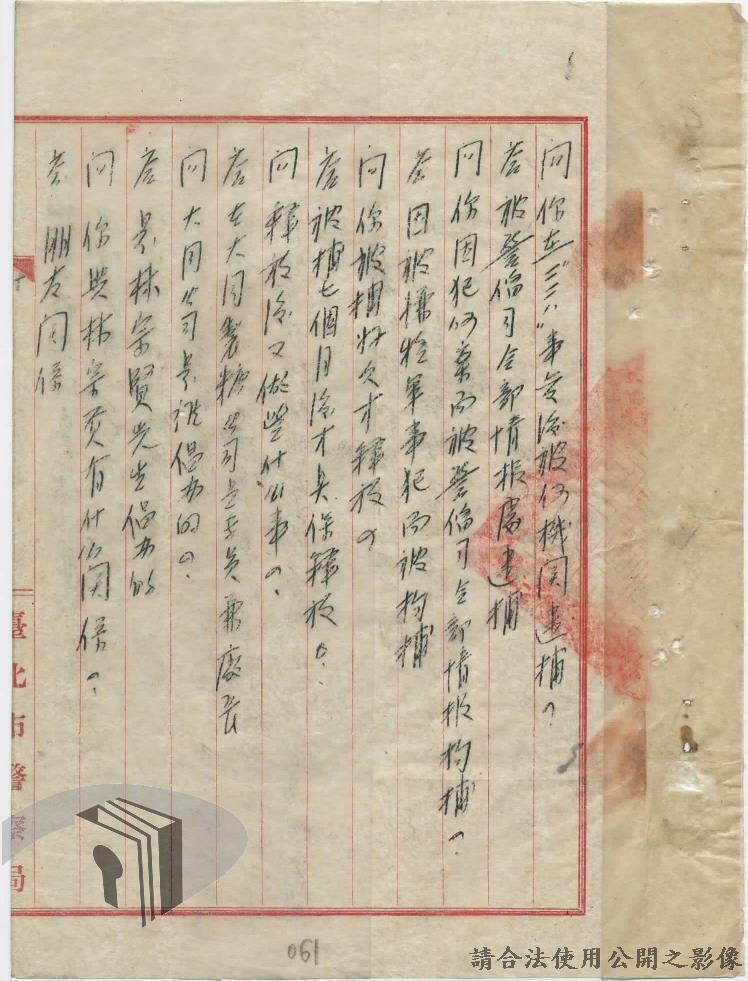 問 你在"二二八"事変後被何機関逮捕？
答 被警備司令部情报處逮捕
問 你因犯何案而被警備司令部情报拘捕？
答 因被攏統軍事犯而被拘捕
问 你被捕好久才釋放？
答 被捕七個月後才具保釋放
问 釋放後又做些什么事？
答 在大同製糖公司是委員兼廠長
问 大同公司是谁倡办的？
答 是林宗賢先生倡办的
问 你與林宗贤有什么関係？
答 朋友関係
臺北市警察局
190
請合法使用公開之影像